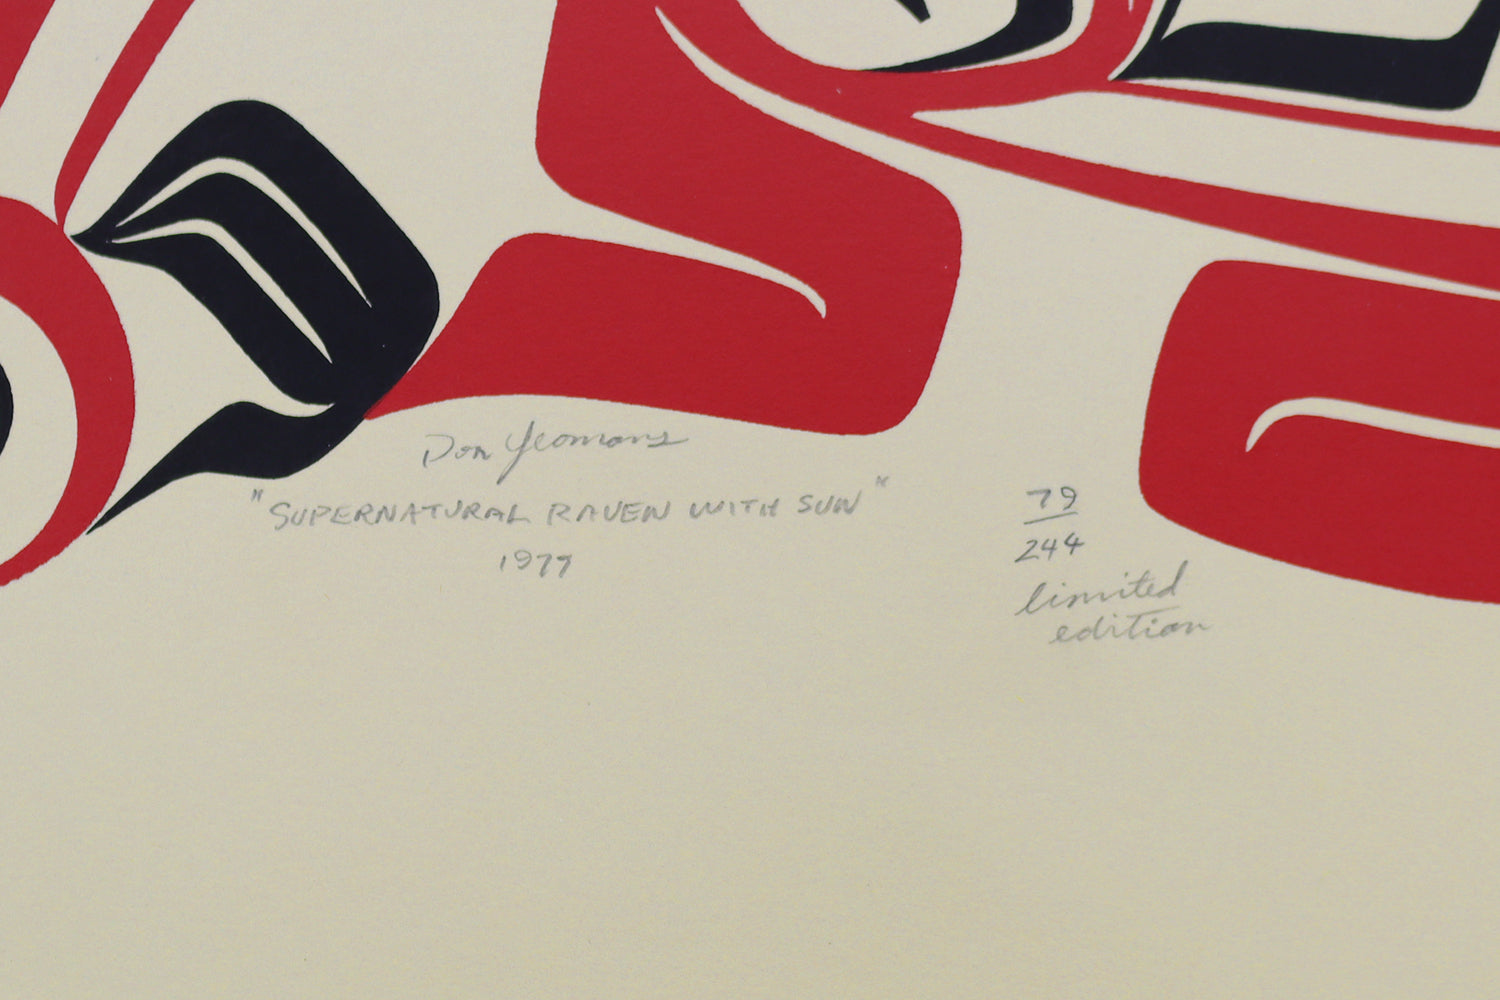 Don Yeomans
"SUPERNATURAL RAVEN WITH SUN"
1977
79
244
limited
edition